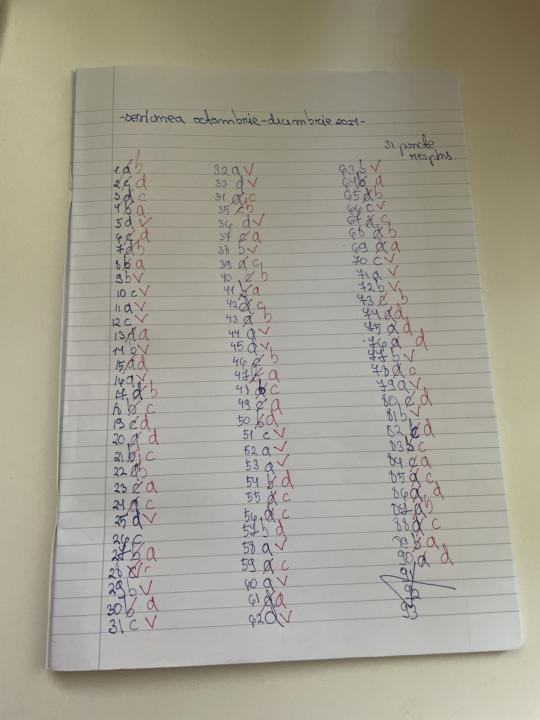 -sesiunea octombrie-decembrie 2021-
31 puncte
respins
1. a b
2. c d
3. d c
4. b a
5. d v
6. c a
7. d b
8. b a
9. b v
10. c v
11. a v
12. c v
13. d a
14. b v
15. d d
16. a v
17. d b
b c
19. c d
20. a d
21. b c
22. d b
23. c a
24. d c
25. d v
26. c
27. b a
28. c
29. b v
30. b d
31 c v
32 a v
33 d v
34 d c
35 c b
36 d v
37 c a
38 b v
39 a c
40 c b
41 b a
42 d c
43 a b
44 a v
45 a v
46 c b
47 c a
48 b c
49 c a
50 b a
51 c v
52 a v
53 a v
54 b d
55 a c
56 a c
57 b d
58 a v
59 a c
60 a v
61 d a
62 d v
63 b v
64 b d
65 d b
66 c v
67 a c
68 a b
69 d a
70 c v
71 a v
72 b v
73 c b
74 a d
75 a d
76 a d
77 b v
78 a c
79 a v
80 c d
81 b v
82 c d
83 b c
84 c a
85 a c
86 a d
87 a b
88 a c
89 b a
90 a d
91
92
93